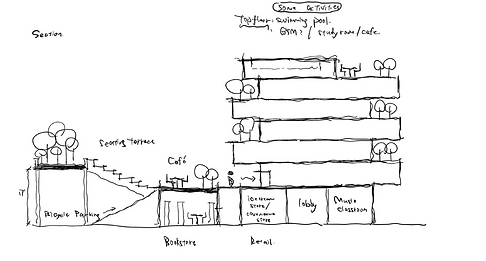 Some Activities
Top floor: swimming pool.
GYM? / study room / cafe.
Section
Seating terrace
Café
Bicycle Parking
store /
convenience
store
lobby
Music
classroom
Bookstore
Retail